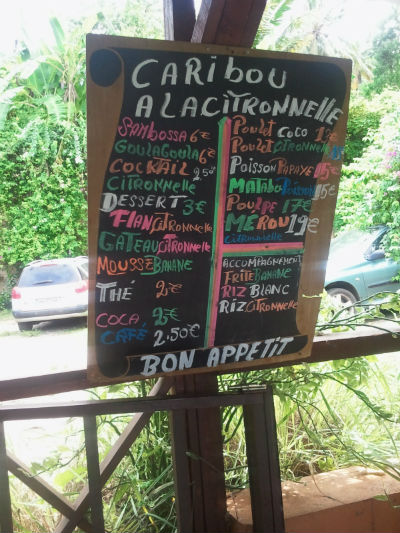 CARIBOU
A LA CITRONNELLE
SAMBOSSA 6€
GOULAGOULA 6€
COCKAIL 2.50€
CITRONNELLE
DESSERT 3€
FLAN CITRONNELLE
GATEAU CITRONNELLE
MOUSSE BANANE
THÉ 2€
COCA 2€
CAFÉ 2.50€
POULET COCO
POULET CITRONNELLE
POISSON PAPAYE 15€
MATABA POISSON 15€
POULPE 17€
MÉROU 19€
CITRONNELLE
ACCOMPAGNEMENT
FRITE BANANE
RIZ BLANC
RIZ CITRONNELLE
BON APPETIT